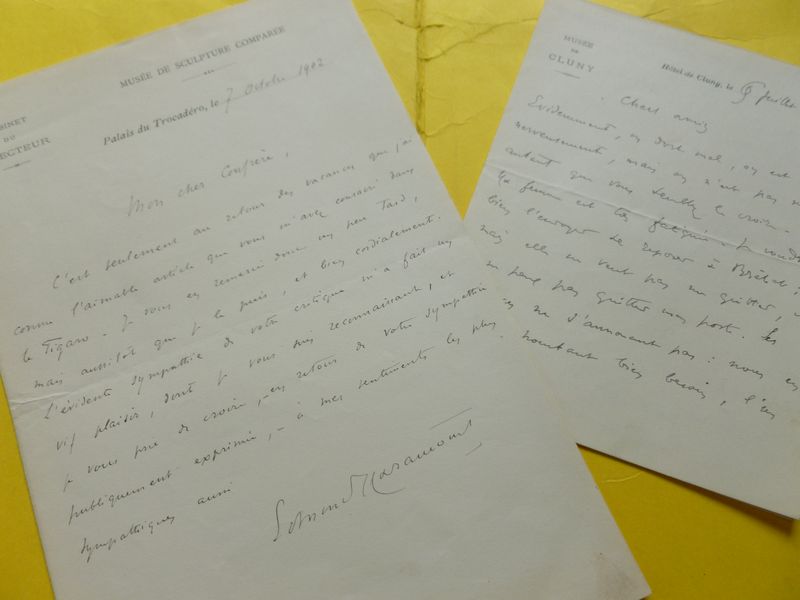 MUSÉE DE SCULPTURE COMPARÉE
BINET
DU
ECTEUR
Palais du Trocadéro, le 7 Octobre 1902
Mon cher Confrère,
C'est seulement au retour des vacances que j'ai
connu l'aimable article que vous m'avez consacré dans
le Figaro. Je vous en remercie donc un peu tard,
mais aussitôt que je le puis, et bien cordialement.
L'évidente sympathie de votre critique m'a fait un
vif plaisir, dont je vous suis reconnaissant, et
je vous prie de croire, - en retour de votre sympathie
publiquement exprimée, - à mes sentiments les plus
sympathiques aussi
Edmond Haraucourt
MUSÉE
DE
CLUNY
Hôtel de Cluny, le juillet
Chers amis
Evidemment, on dort mal, on est
nerveusement, mais on n'est pas
autant que vous semblez le croire.
Ma femme est très fatiguée. Je voudrais
bien l'envoyer se reposer à Bréhat,
mais elle ne veut pas me quitter,
ne peux pas quitter mon poste. Les
ne s'annoncent pas : nous en
pourtant bien besoin,